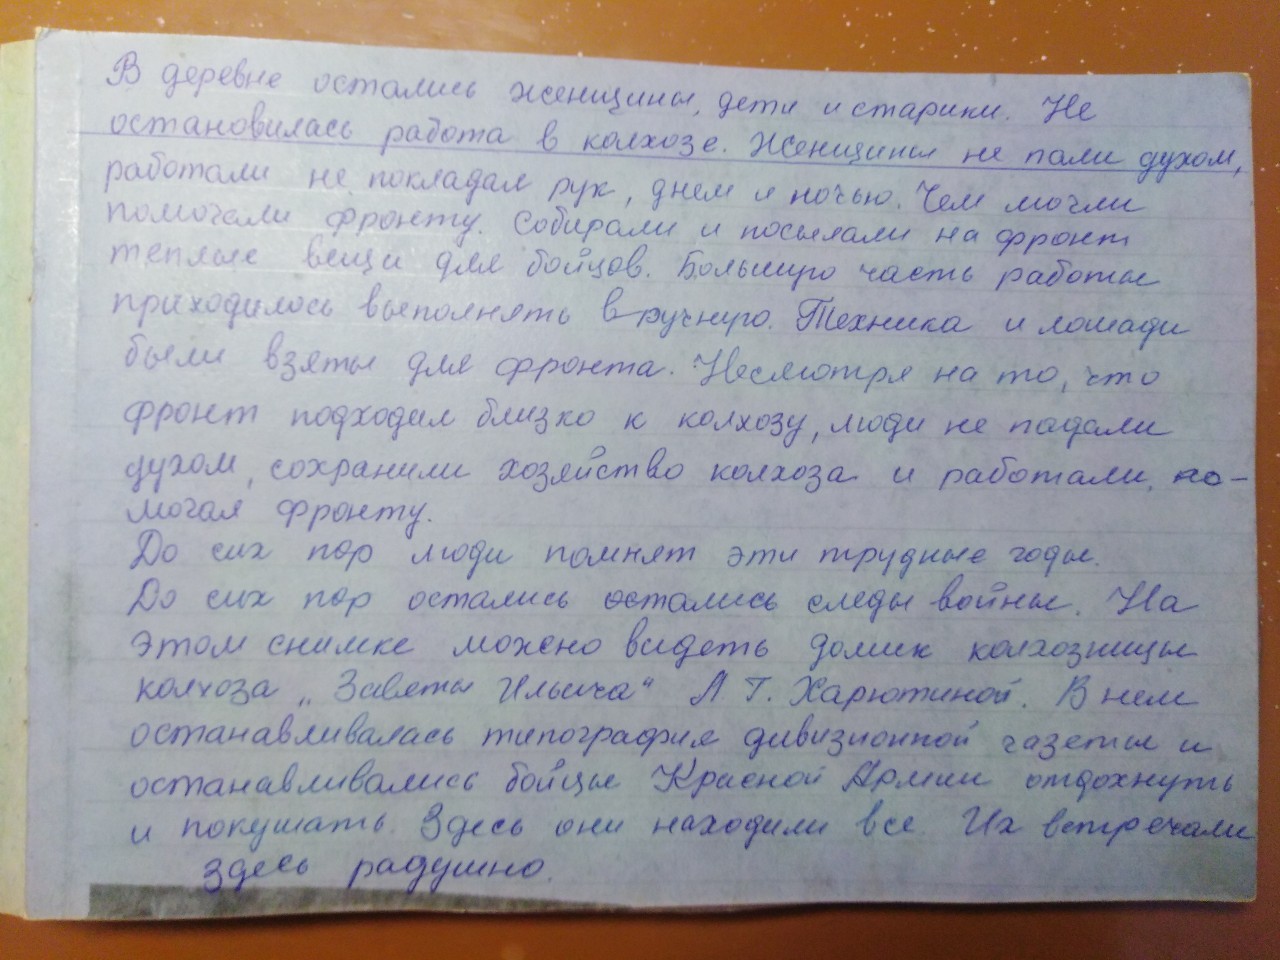 В деревне остались женщины, дети и старики. Не
остановилась работа в колхозе. Женщины не пали духом,
работали не покладая рук, днем и ночью. Чем могли
помогали фронту. Собирали и посылали на фронт
теплые вещи для бойцов. Большую часть работы
приходилось выполнять вручную. Техника и лошади
были взяты для фронта. Несмотря на то, что
фронт подходил близко к колхозу, люди не падали
духом, сохранили хозяйство колхоза и работали, по-
могая фронту.
До сих пор люди помнят эти трудные годы.
До сих пор остались остались следы войны. На
этом снимке можно видеть домик колхозницы
колхоза „Заветы Ильича“ А Г. Харютиной. В нем
останавливалась типография дивизионной газеты и
останавливались бойцы Красной Армии отдохнуть
и покушать. Здесь они находили все. Их встречали
здесь радушно.